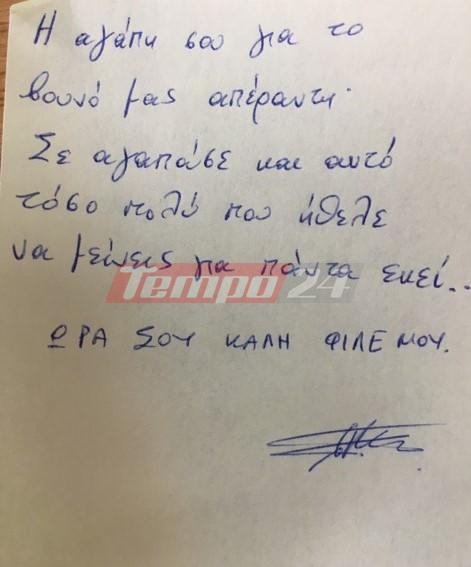 Η αγάπη σου για το
βουνό μας απέραντη.
Σε αγαπάσε και αυτό
τόσο πολύ που ήθελε
να μείνεις για πάντα εκεί..
Tempo 24
ΩΡΑ ΣΟΥ ΚΑΛΗ ΦΙΛΕ ΜΟΥ.